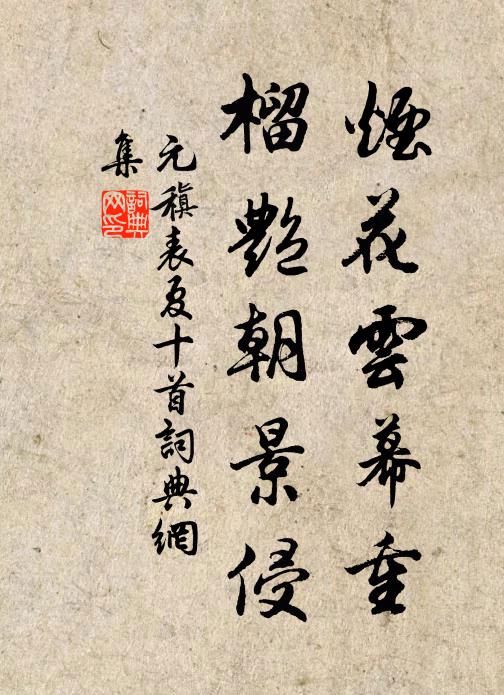 煙花雲幕重
榴艷朝景侵
元稹表夏十首詞典網
集
詞典
网印